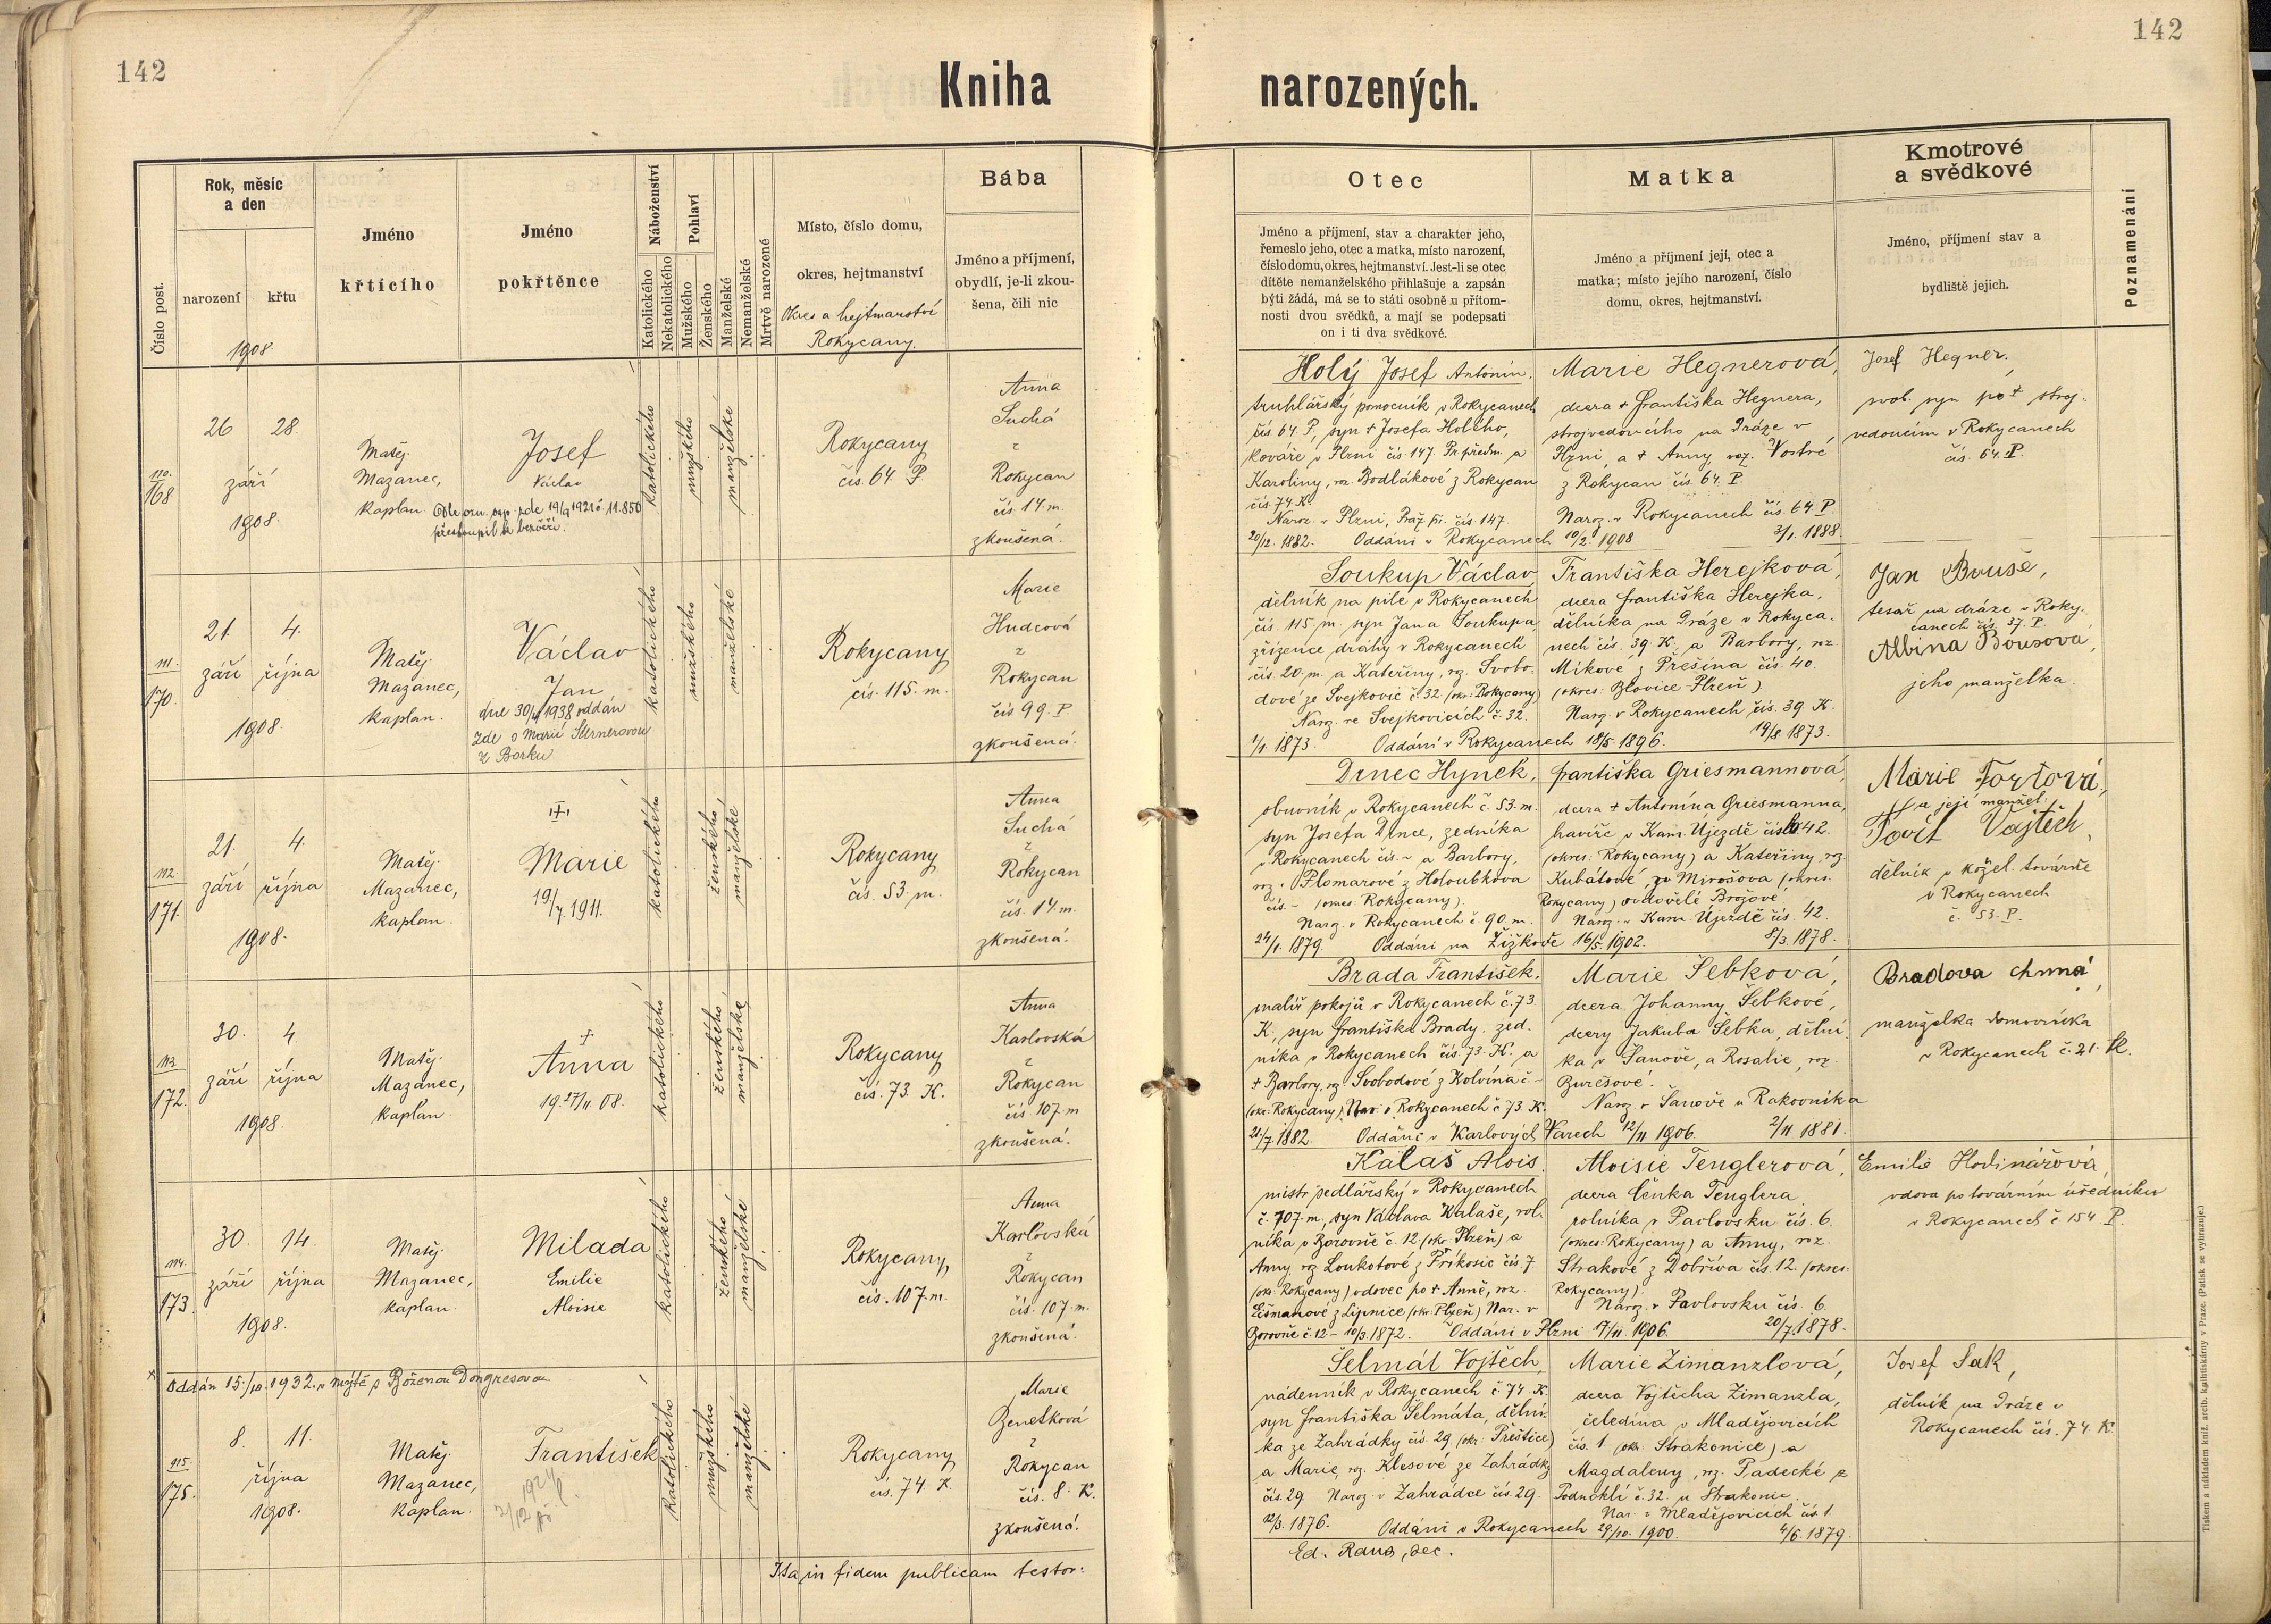 142
142
Kniha
narozených.
Číslo post.
Rok, měsíc
a den
narození
křtu
1908.
Jméno
křtícího
Jméno
pokřtěnce
Náboženství
Katolického
Nekatolického
Pohlaví
Mužského
Ženského
Manželské
Nemanželské
Mrtvě narozené
Místo, číslo domu,
okres, hejtmanství
Okres a hejtmanství
Rokycany.
Bába
Jméno a příjmení,
obydlí, je-li zkou-
šena, čili nic
Otec
Jméno a příjmení, stav a charakter jeho,
řemeslo jeho, otec a matka, místo narození,
číslo domu, okres, hejtmanství. Jest-li se otec
dítěte nemanželského přihlašuje a zapsán
býti žádá, má se to státi osobně u přítom-
nosti dvou svědků, a mají se podepsati
on i ti dva svědkové.
Matka
Jméno a příjmení její, otec a
matka; místo jejího narození, číslo
domu, okres, hejtmanství.
Kmotrové
a svědkové
Jméno, příjmení stav a
bydliště jejich.
Poznamenání
110.
168
26 28.
září
1908.
Matěj
Mazanec,
kaplan.
Josef
Václav
Dle ozn. osp. zde 19/9 1921 č 11.850
přestoupil k bezvěří.
katolického
mužského
manželské
Rokycany
čís. 64 P
Anna
Suchá
z
Rokycan
čís. 14 m.
zkoušená.
Holý Josef Antonín.
truhlářský pomocník v Rokycanech
čís 64. P, syn + Josefa Holého,
kováře v Plzni čís. 147. Pr. předm. a
Karoliny, roz. Bodlákové z Rokycan
čís. 74. K.
Naroz. v Plzni, Praž. př. čís. 147.
20/12. 1882. Oddáni v Rokycanech 10/2. 1908
Marie Hegnerová,
dcera + Františka Hegnera,
strojvedoucího na dráze v
Plzni, a + Anny roz. Vostré
z Rokycan čís. 64. P.
Naroz. v Rokycanech čís. 64 P.
3/1. 1888.
Josef Hegner,
svob. syn po + stroj-
vedoucím v Rokycanech
čís. 64. P.
111.
170.
21. 4.
září října
1908.
Matěj
Mazanec,
kaplan.
Václav
Jan
dne 30/4 1938 oddán
zde s Marií
z Borku
katolického
mužského
manželské
Rokycany
čís. 115. m.
Marie
Hudcová
z
Rokycan
čís. 99. P.
zkoušená.
Soukup Václav
dělník na pile v Rokycanech
čís. 115. m. syn Jana Soukupa,
zřízence dráhy v Rokycanech
čís. 20. m. a Kateřiny, rz. Svobo-
dové ze Svejkovic č. 32. (okr: Rokycany)
Naroz. ve Svejkovicích č. 32.
1/1. 1873. Oddáni v Rokycanech 18/5. 1896.
Františka Herejková,
dcera Františka Herejka,
dělníka na dráze v Rokyca-
nech čís. 39 K. a Barbory, rz.
Míkové z Přešina čís. 40.
(okres: Blovice Plzeň)
Narz. v Rokycanech čís. 39 K.
19/8. 1873.
Jan Bouše,
tesař na dráze v Roky-
canech čís. 37. P.
Albina Boušová,
jeho manželka.
112.
171.
21. 4.
září října
1908.
Matěj
Mazanec,
kaplan.
+
Marie
19/7 1911.
katolického
ženského
manželské
Rokycany
čís. 53. m.
Anna
Suchá
z
Rokycan
čís. 14 m.
zkoušená.
Drnec Hynek,
obuvník v Rokycanech č. 53. m.
syn Josefa Drnce, zedníka
v Rokycanech čís. ~ a Barbory,
roz. Plomarové z Holoubkova
čís. – (okres. Rokycany).
Narz. v Rokycanech č. 90 m.
24/1. 1879. Oddáni na Žižkově 16/5. 1902.
Františka Griesmannová,
dcera + Antonína Griesmanna,
havíře v Kam. Újezdě čís. 42.
(okres: Rokycany) a Kateřiny, rz.
Kubátové, ze Mirošova (okres.
Rokycany) ovdovělé Brožové.
Naroz. v Kam. Újezdě čís. 42.
8/3. 1878.
Marie Foxtová,
a její manžel
Vojtěch,
dělník v kožel. továrně
v Rokycanech
č. 53. P.
113.
172.
30. 4.
září října
1908.
Matěj
Mazanec,
kaplan.
+
Anna
19.27/11 08.
katolického
ženského
manželské
Rokycany
čís. 73. K.
Anna
Karlovská
z
Rokycan
čís 107 m
zkoušená.
Brada František.
malíř pokojů v Rokycanech č. 73.
K., syn Františka Brady. zed-
níka v Rokycanech čís. 73. K. a
+ Barbory, rz. Svobodové z Kolvína č –
(okr: Rokycany). Nar. v Rokycanech č 73. K.
21/7. 1882. Oddáni v Karlových Varech 12/11 1906.
Marie Šebková,
dcera Johanny Šebkové,
dcery Jakuba Šebka, dělní-
ka v Šanově, a Rosalie, roz.
Burešové.
Naroz. v Šanově u Rakovníka
2/11 1881.
Bradova
manželka domovníka
v Rokycanech č. 21. K.
114.
173.
30. 14.
září října
1908.
Matěj
Mazanec,
kaplan.
Milada
Emilie
Aloisie
katolického
ženského
manželské
Rokycany,
čís. 107. m.
Anna
Karlovská
z
Rokycan
čís. 107. m.
zkoušená.
Kalaš Alois.
mistr sedlářský v Rokycanech
č. 107. m., syn Václava Kalaše, rol-
níka v Borovně č. 12 (okr. Plzeň) a
Anny rz. Loukotové z Příkosic čís 7
(okr. Rokycany) vdovec po + Anně, roz.
Lišmanové z Lipnice (okr. Plzeň) Nar. v
Borovně č. 12 – 10/3. 1872. Oddáni v Plzni 17/11. 1906.
Aloisie Tenglerová,
dcera Čeňka Tenglera,
rolníka v Pavlovsku čís. 6.
(okres: Rokycany) a Anny, roz.
Strakové z Dobříva čís. 12. (okres:
Rokycany).
Naroz. v Pavlovsku čís. 6.
20/7. 1878.
Emilie Hodinářová,
vdova po továrním úředníku
v Rokycanech č. 154 P.
* Oddán 15./10. 1932. v Mýtě s Boženou Dongresovou
915.
175.
8. 11.
října
1908.
Matěj
Mazanec,
kaplan.
František
katolického
mužského
manželské
Rokycany
čís. 74 K.
Marie
Benetková
z
Rokycan
čís. 8. K.
zkoušená.
Šelmát Vojtěch,
nádenník v Rokycanech č. 74 K.
syn Františka Šelmáta, dělní-
ka ze Zahrádky čís. 29 (okr: Přeštice)
a Marie, roz. Klesové ze Zahrádky
čís. 29. Naroz. v Zahrádce čís 29.
12/3. 1876. Oddáni v Rokycanech 29/10. 1900.
Marie Zimanzlová,
dcera Vojtěcha Zimanzla,
čeledína v Mladějovicích
čís. 1 (okr. Strakonice) a
Magdaleny, rz. Radecké z
Podnoklí č. 32. u Strakonic.
Nar. v Mladějovicích čís. 1
4/6. 1879.
Josef Sak,
dělník na dráze v
Rokycanech čís. 74. K.
Ita in fidem publicam testor:
Ed. Raus, dec.
Tiskem a nákladem kníž. arcib. knihtiskárny v Praze. (Patisk se vyhrazuje.)